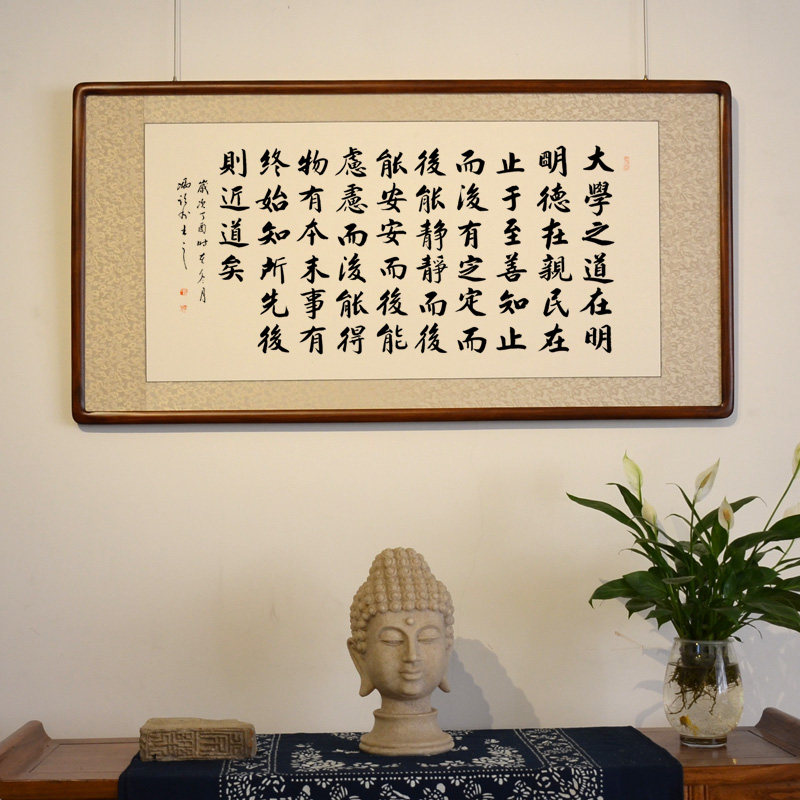 大學之道在明
明德在親民在
止于至善知止
而後有定定而
後能靜靜而後
能安安而後能
慮慮而後能得
物有本末事有
終始知所先後
則近道矣
歲次丁酉時在冬月